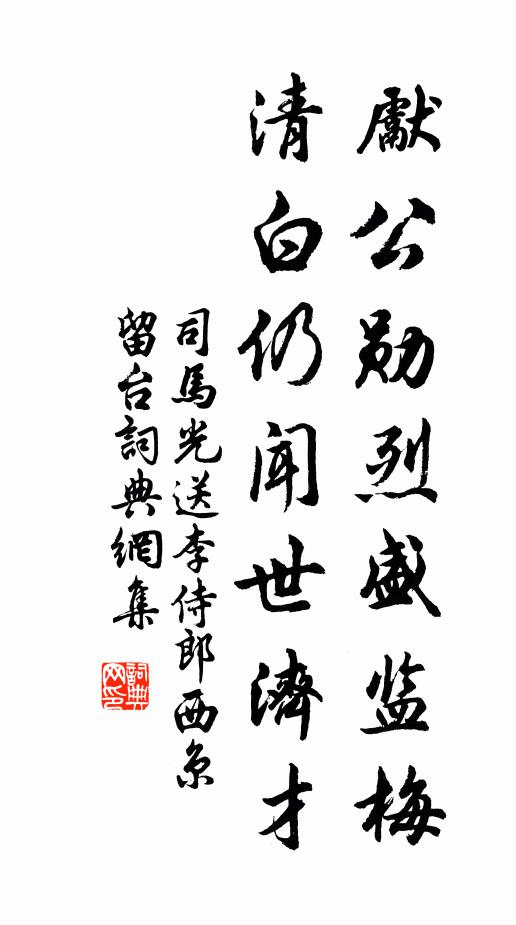 獻公勛烈盛监梅
清白仍聞世濟才
司馬光送李侍郎西京
留台詞典網集
詞典网印